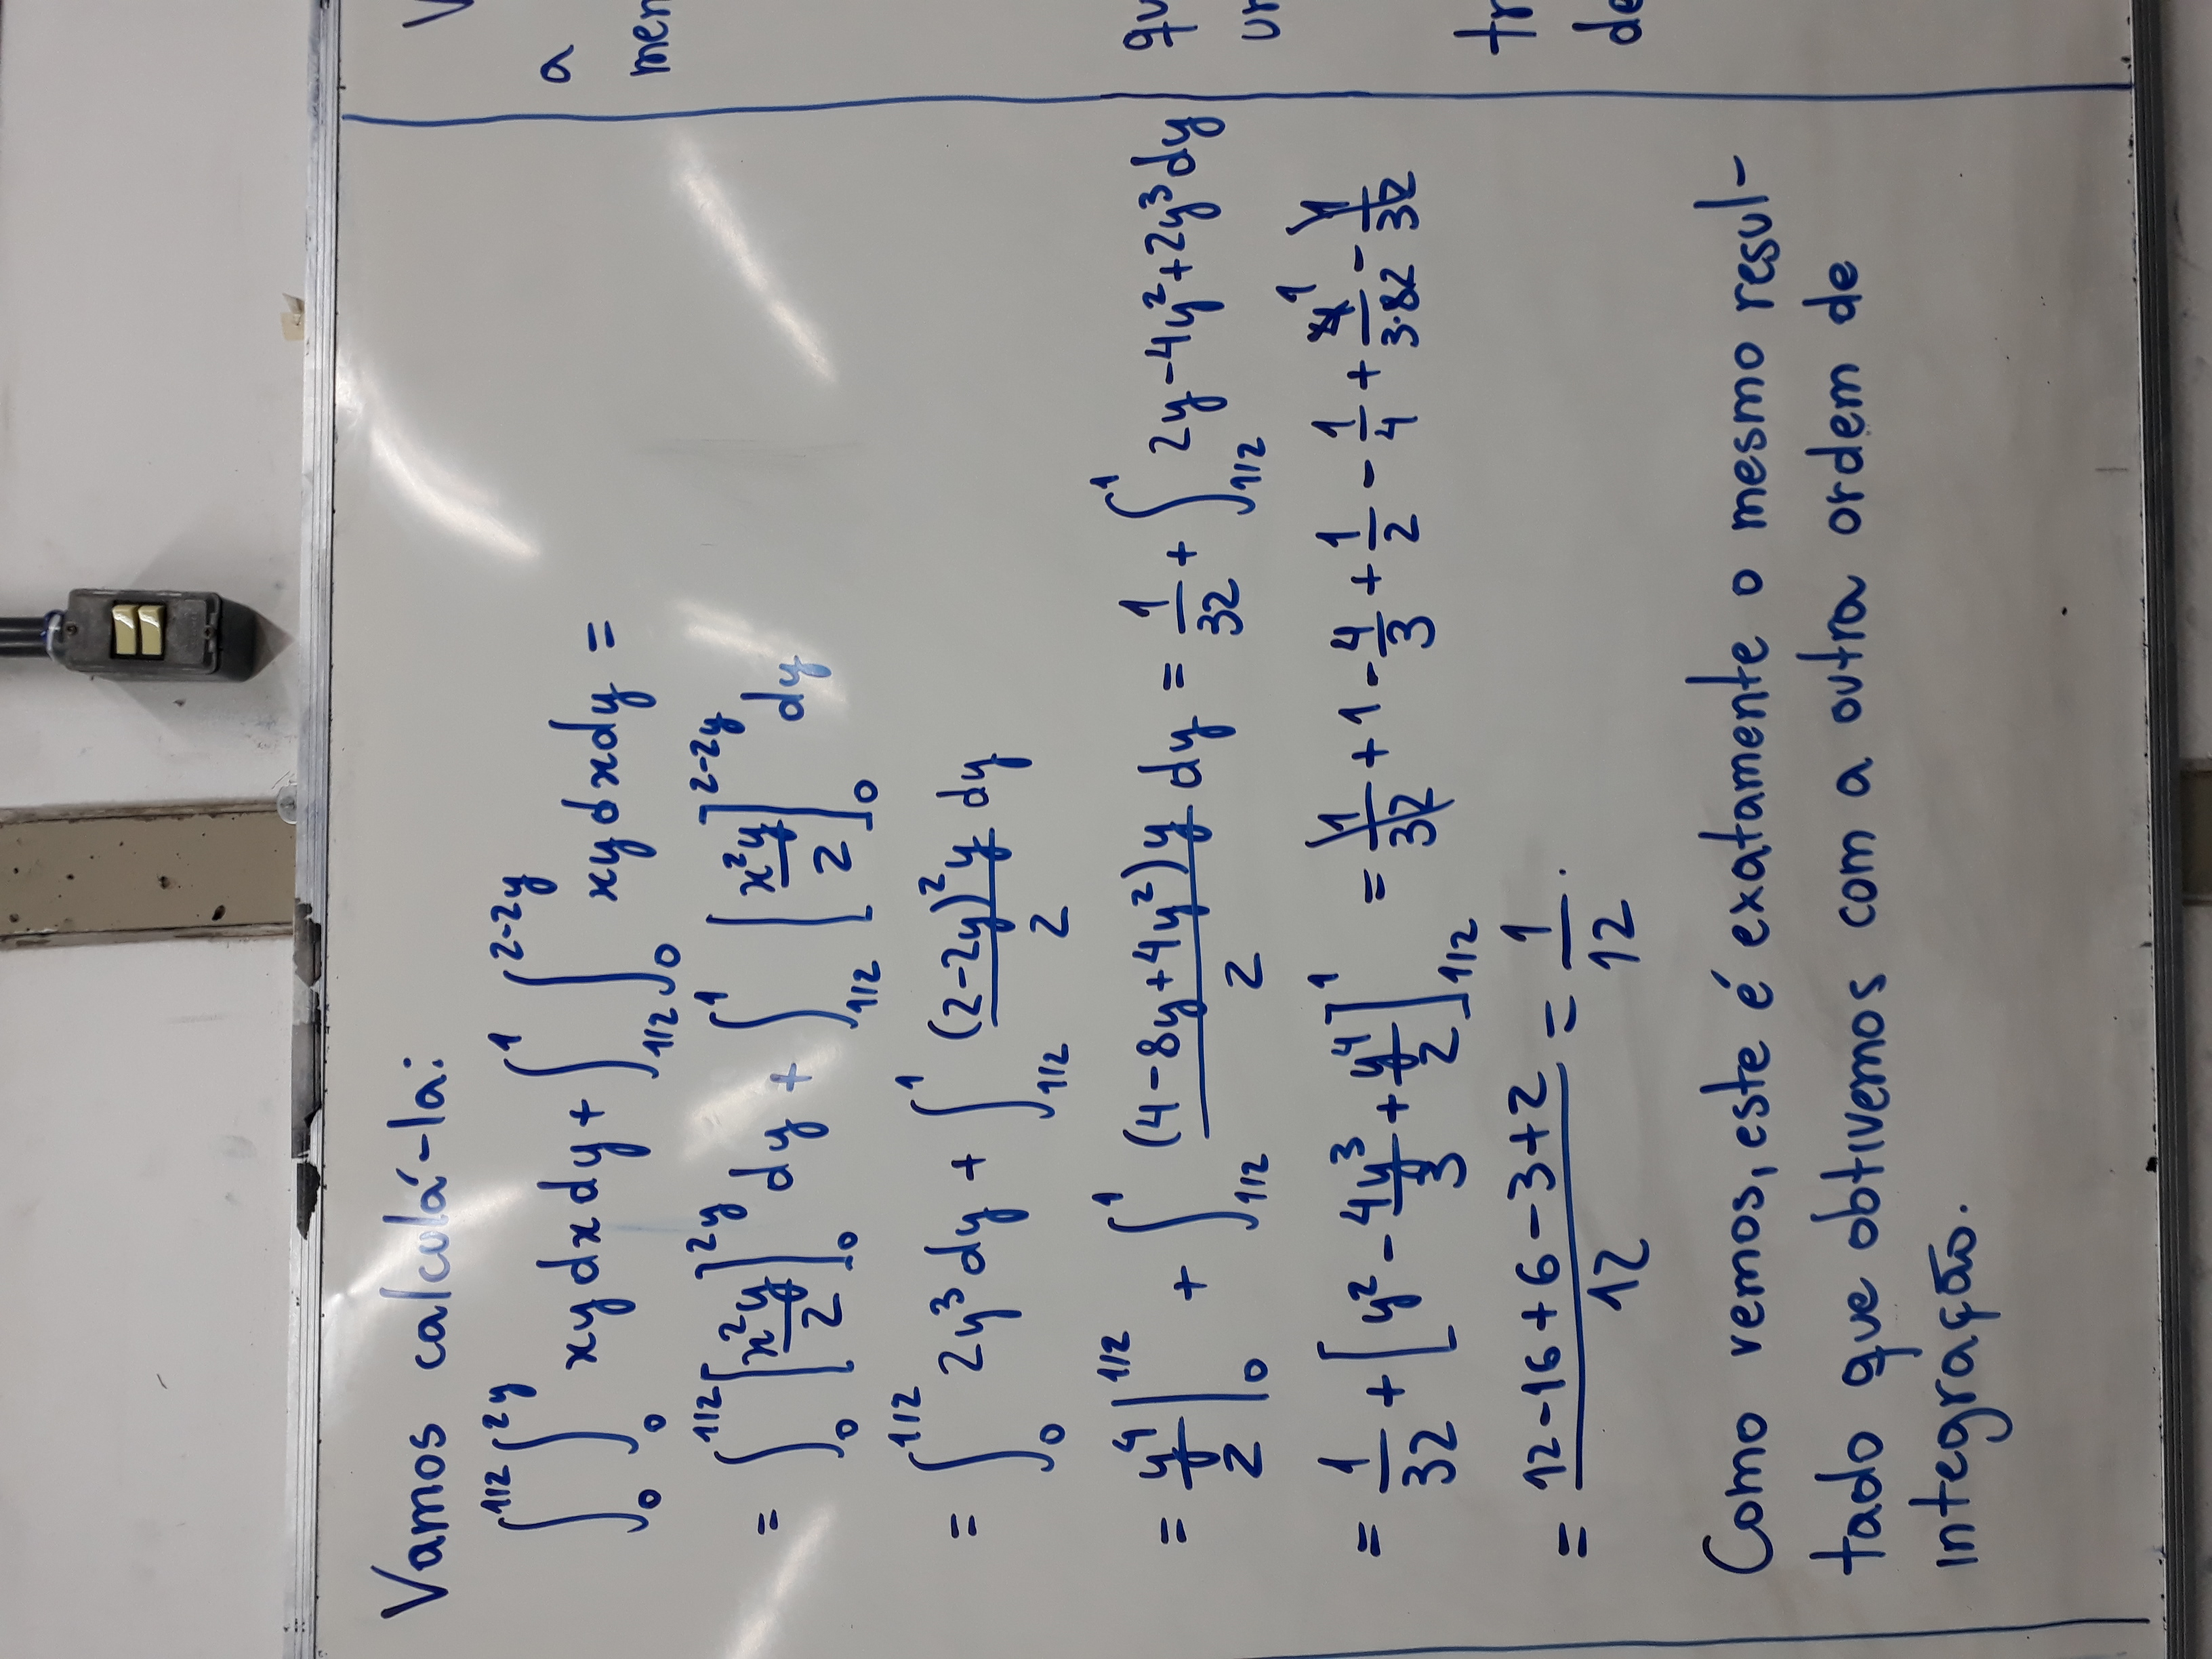 Vamos calculá-la:
∫_0^{1/2} ∫_0^{2y} xy dx dy + ∫_{1/2}^1 ∫_0^{2-2y} xy dx dy =
= ∫_0^{1/2} [x²y/2]_0^{2y} dy + ∫_{1/2}^1 [x²y/2]_0^{2-2y} dy
= ∫_0^{1/2} 2y³ dy + ∫_{1/2}^1 (2-2y)²y/2 dy
= y⁴/2 |_0^{1/2} + ∫_{1/2}^1 (4-8y+4y²)y/2 dy = 1/32 + ∫_{1/2}^1 2y-4y²+2y³ dy
= 1/32 + [y² - 4y³/3 + y⁴/2]_{1/2}^1 = 1/32 + 1 - 4/3 + 1/2 - 1/4 + 4 1/3·82 - 1/32
= (12-16+6-3+2)/12 = 1/12.
Como vemos, este é exatamente o mesmo resul-
tado que obtivemos com a outra ordem de
integração.
a